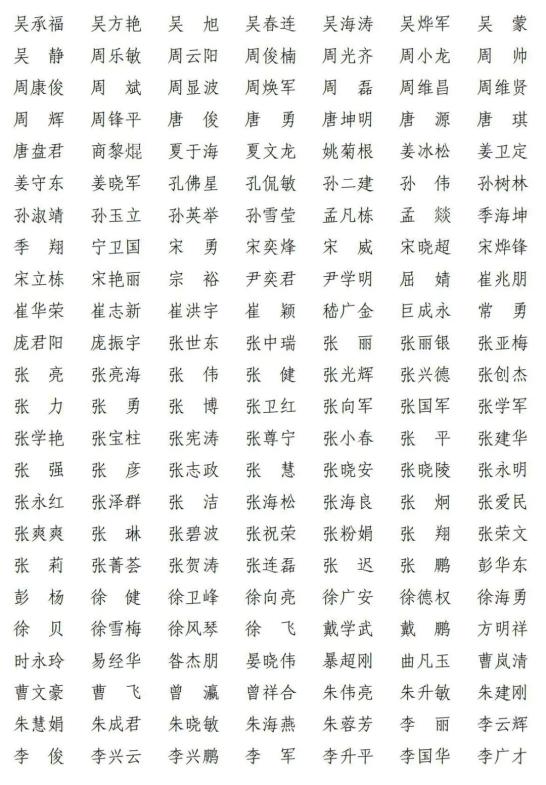 吴承福 吴方艳 吴　旭 吴春连 吴海涛 吴烨军 吴　蒙
吴　静 周乐敏 周云阳 周俊楠 周光齐 周小龙 周　帅
周康俊 周　斌 周显波 周焕军 周　磊 周维昌 周维贤
周　辉 周锋平 唐　俊 唐　勇 唐坤明 唐　源 唐　琪
唐盘君 商黎焜 夏于海 夏文龙 姚菊根 姜冰松 姜卫定
姜守东 姜晓军 孔佛星 孔侃敏 孙二建 孙　伟 孙树林
孙淑靖 孙玉立 孙英举 孙雪莹 孟凡栋 孟　燚 季海坤
季　翔 宁卫国 宋　勇 宋奕烽 宋　威 宋晓超 宋烨锋
宋立栋 宋艳丽 宗　裕 尹奕君 尹学明 屈　婧 崔兆朋
崔华荣 崔志新 崔洪宇 崔　颖 嵇广金 巨成永 常　勇
庞君阳 庞振宇 张世东 张中瑞 张　丽 张丽银 张亚梅
张　亮 张亮海 张　伟 张　健 张光辉 张兴德 张创杰
张　力 张　勇 张　博 张卫红 张向军 张国军 张学军
张学艳 张宝柱 张宪涛 张尊宁 张小春 张　平 张建华
张　强 张　彦 张志政 张　慧 张晓安 张晓陵 张永明
张永红 张泽群 张　洁 张海松 张海良 张　炯 张爱民
张爽爽 张　琳 张碧波 张祝荣 张粉娟 张　翔 张荣文
张　莉 张菁荟 张贺涛 张连磊 张　迟 张　鹏 彭华东
彭　杨 徐　健 徐卫峰 徐向亮 徐广安 徐德权 徐海勇
徐　贝 徐雪梅 徐风琴 徐　飞 戴学武 戴　鹏 方明祥
时永玲 易经华 昝杰朋 晏晓伟 暴超刚 曲凡玉 曹岚清
曹文豪 曹　飞 曾　瀛 曾祥合 朱伟亮 朱升敏 朱建刚
朱慧娟 朱成君 朱晓敏 朱海燕 朱蓉芳 李　丽 李云辉
李　俊 李兴云 李兴鹏 李　军 李升平 李国华 李广才